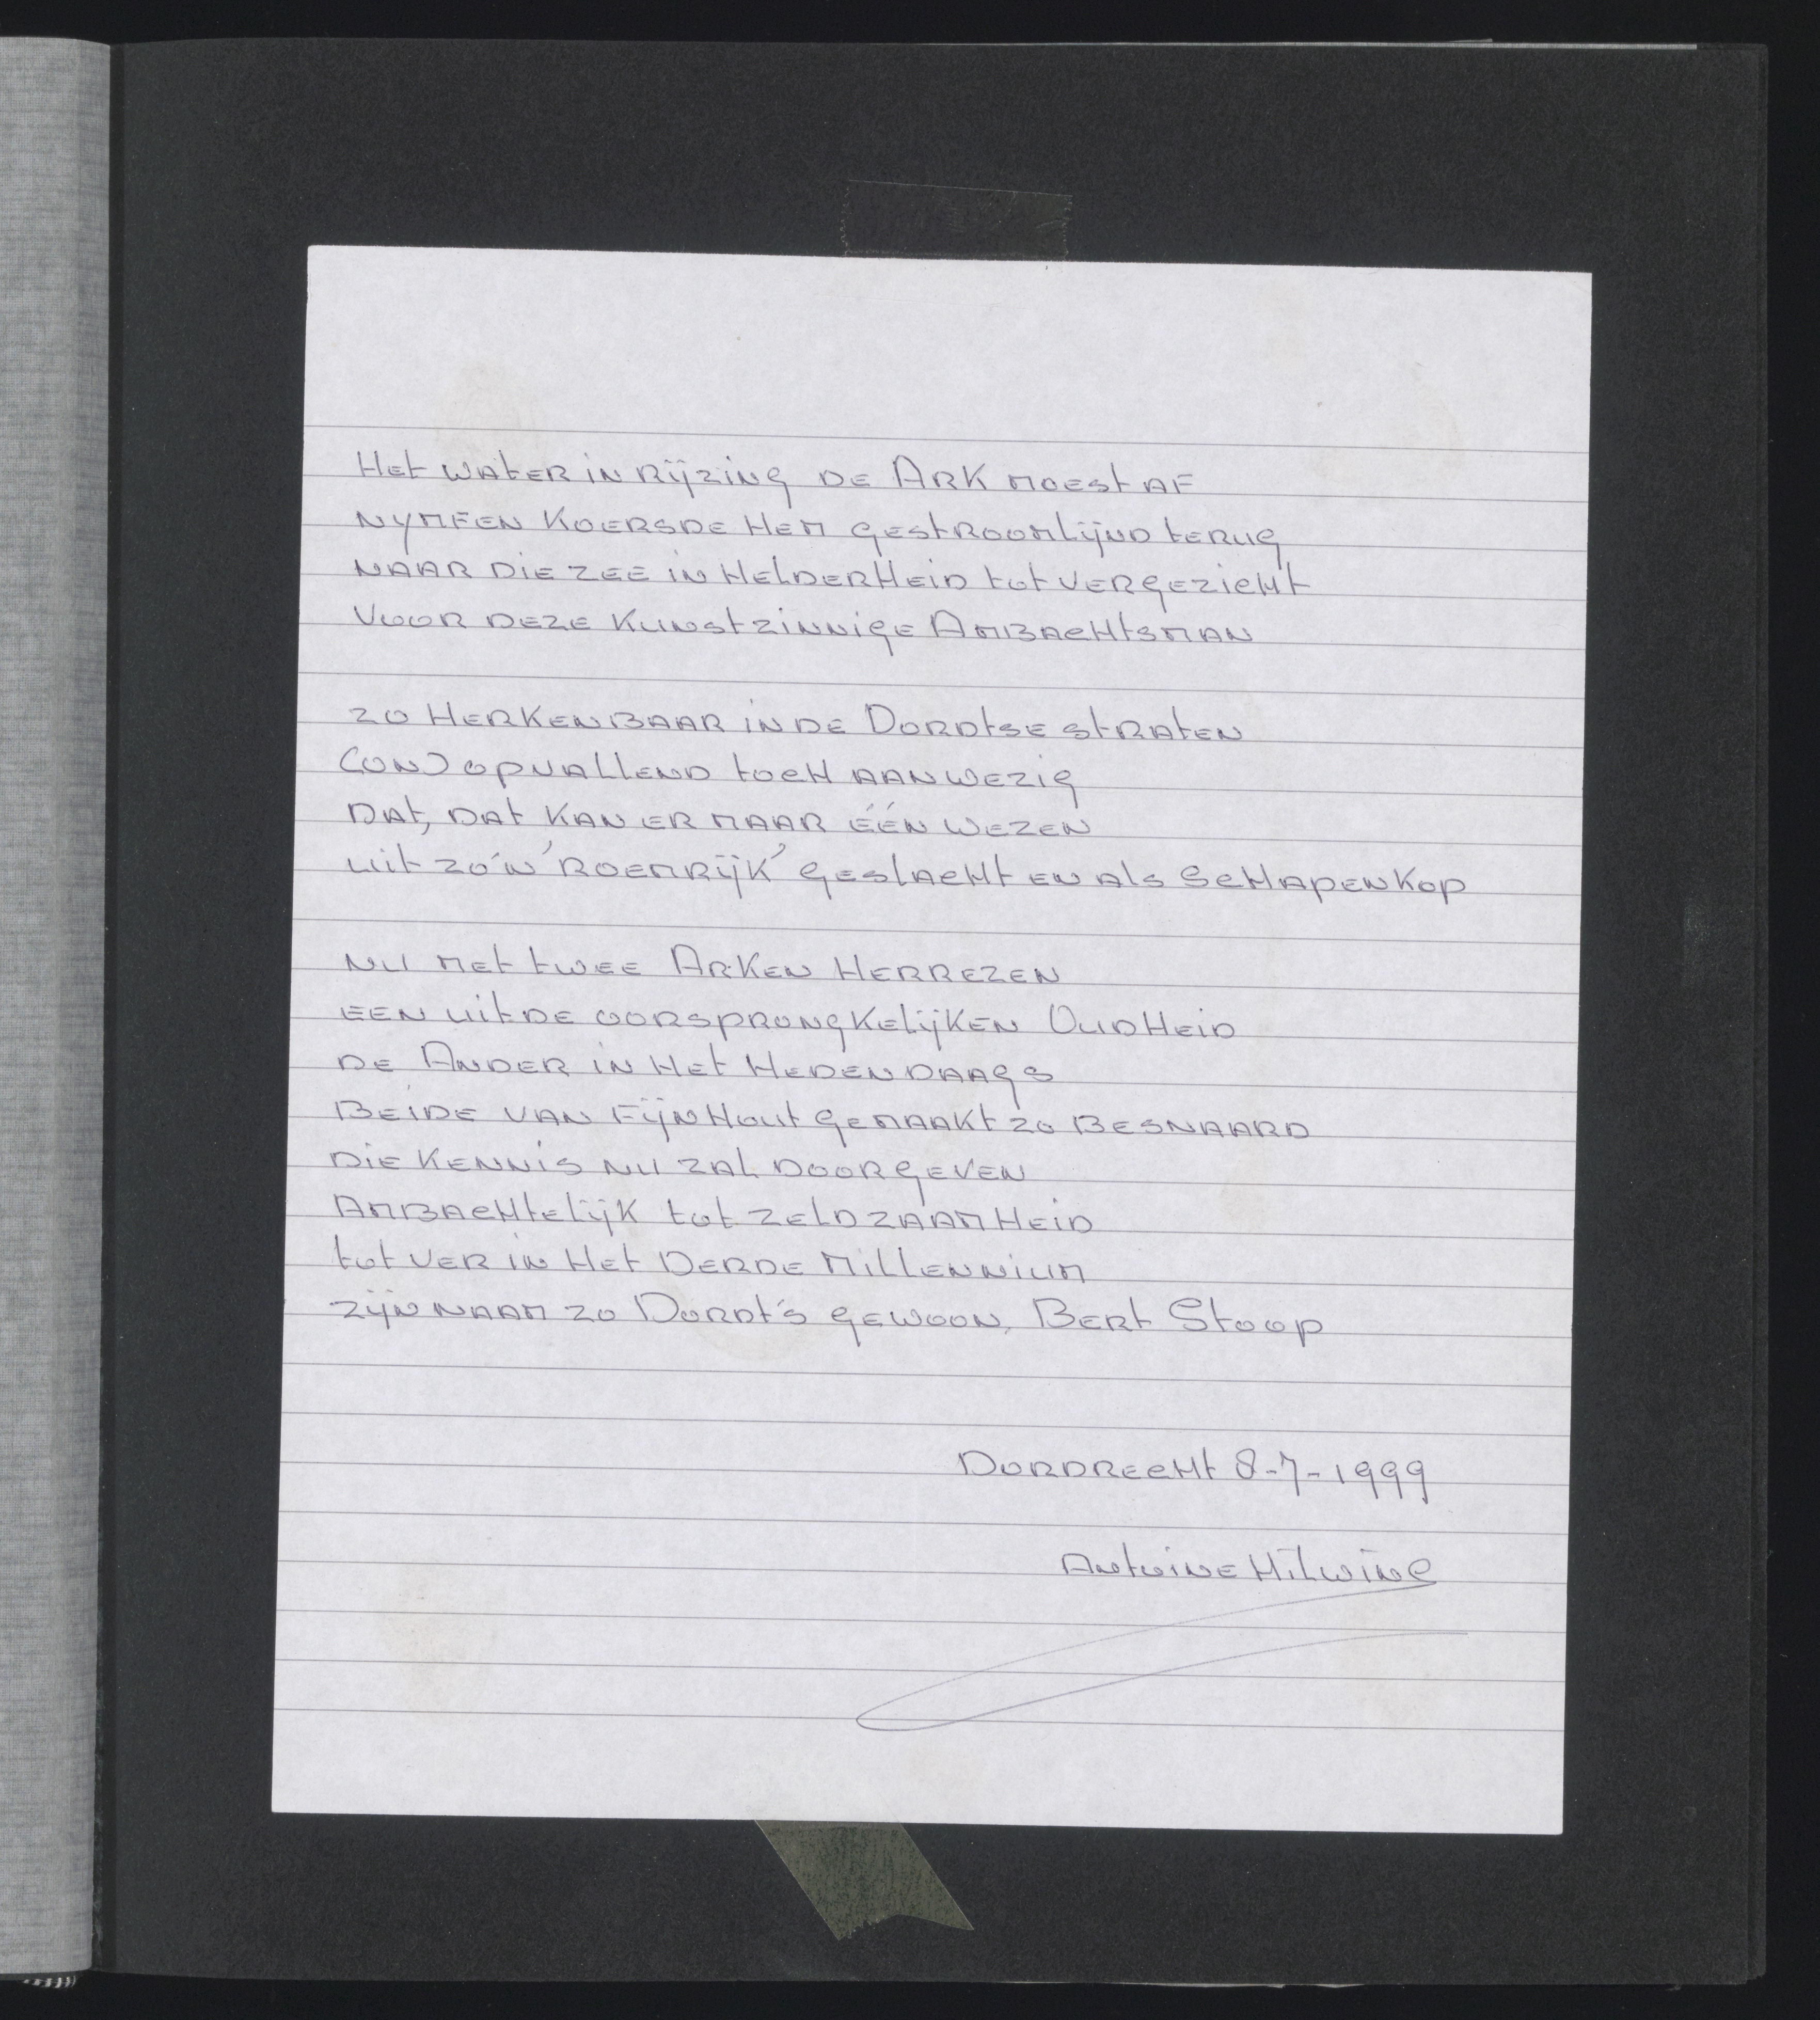 Het water in rijzing de Ark moest af
nymfen koersde hem gestroomlijnd terug
naar die zee in helderheid tot vergezicht
voor deze kunstzinnige Ambachtsman

zo herkenbaar in de Dordtse straten
(on)opvallend toch aanwezig
dat, dat kan er maar één wezen
uit zo'n 'roemrijk' geslacht en als schapenkop

nu met twee Arken herrezen
een uit de oorsprongkelijken Oudheid
de Ander in het hedendaags
Beide van fijnhout gemaakt zo besnaard
die kennis nu zal doorgeven
Ambachtelijk tot zeldzaamheid
tot ver in het Derde millennium
zijn naam zo Dordt's gewoon, Bert Stoop

Dordrecht 8-7-1999

Antoine Hilwine